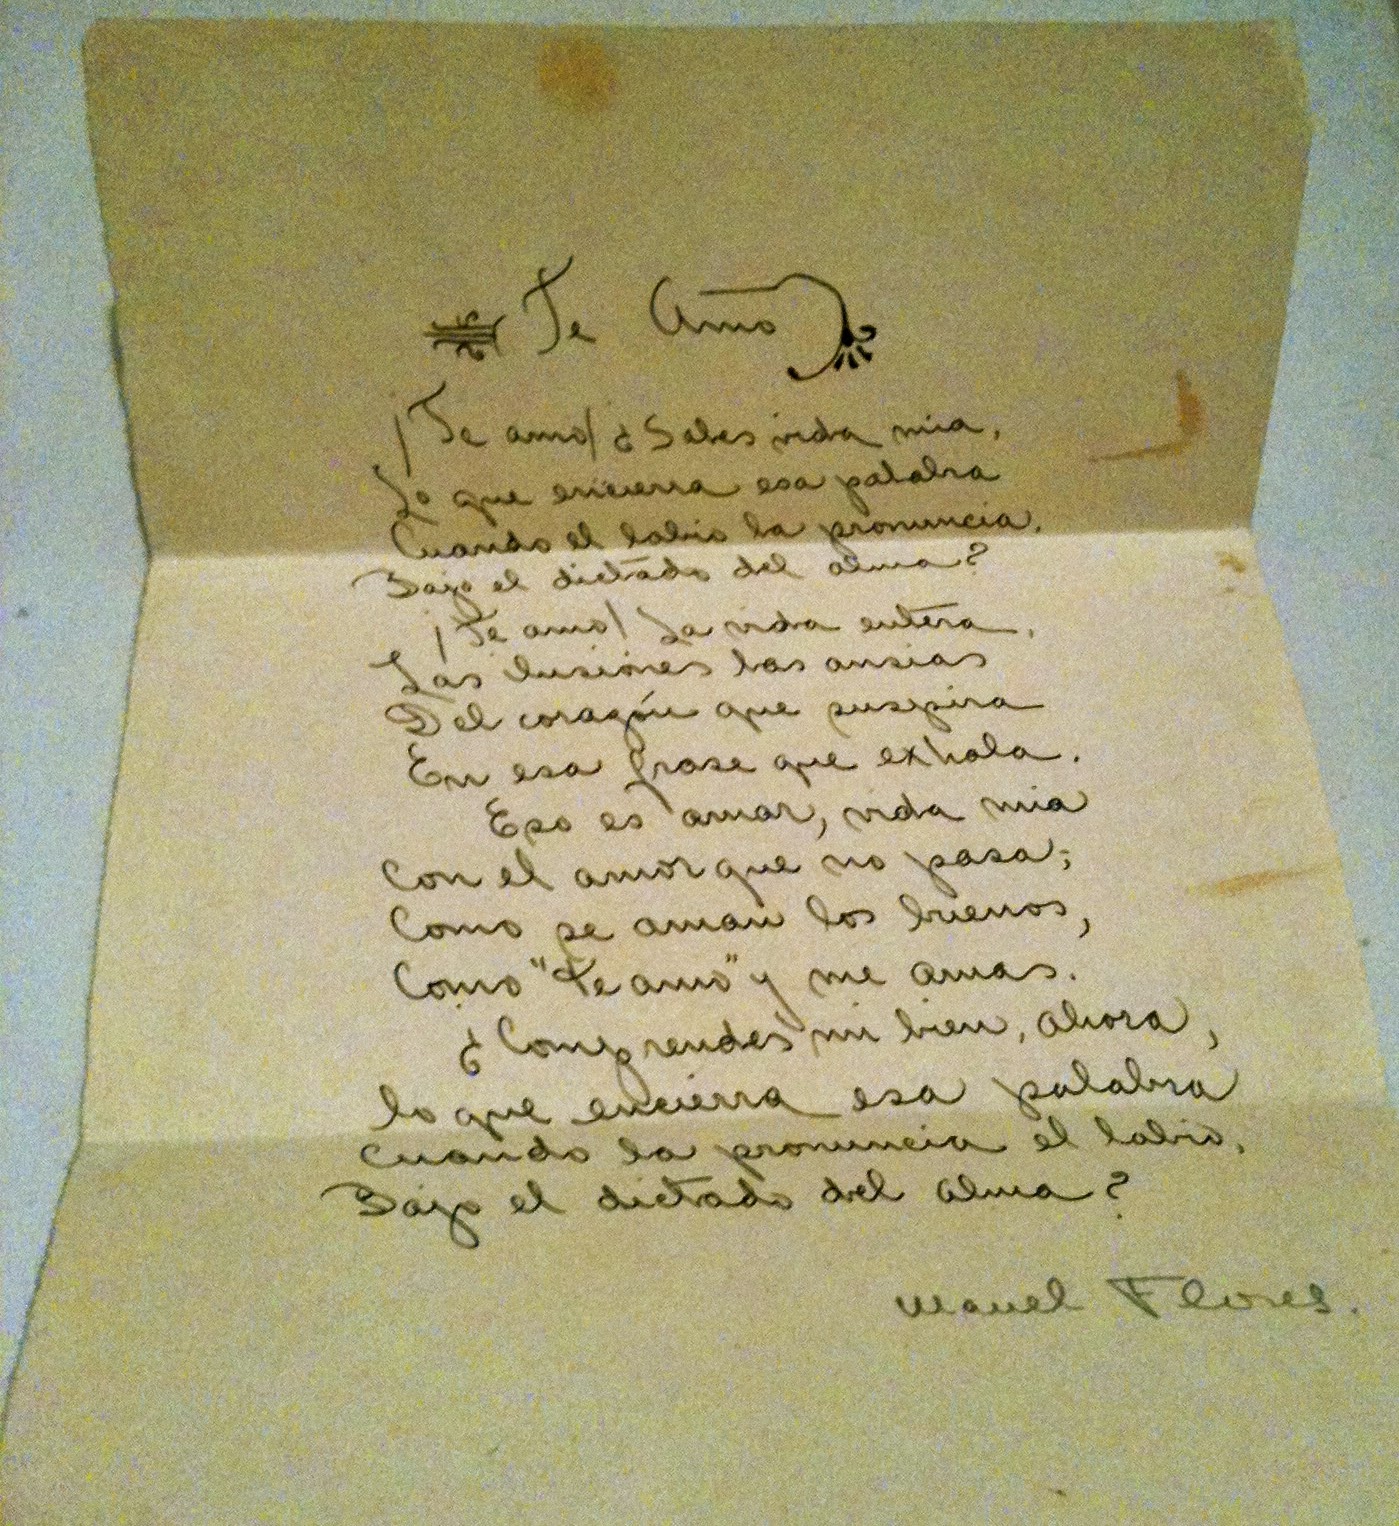 Te Amo
¡Te amo! ¿Sabes vida mia,
Lo que encierra esa palabra
Cuando el labio la pronuncia,
Bajo el dictado del alma?
¡Te amo! La vida entera,
Las ilusiones las ansias
Del corazón que suspira
En esa frase que exhala.
Eso es amar, vida mia
Con el amor que no pasa;
Como se aman los buenos,
Como "te amo" y me amas.
¿Comprendes mi bien, ahora,
lo que encierra esa palabra
cuando la pronuncia el labio,
Bajo el dictado del alma?
Manuel Flores.